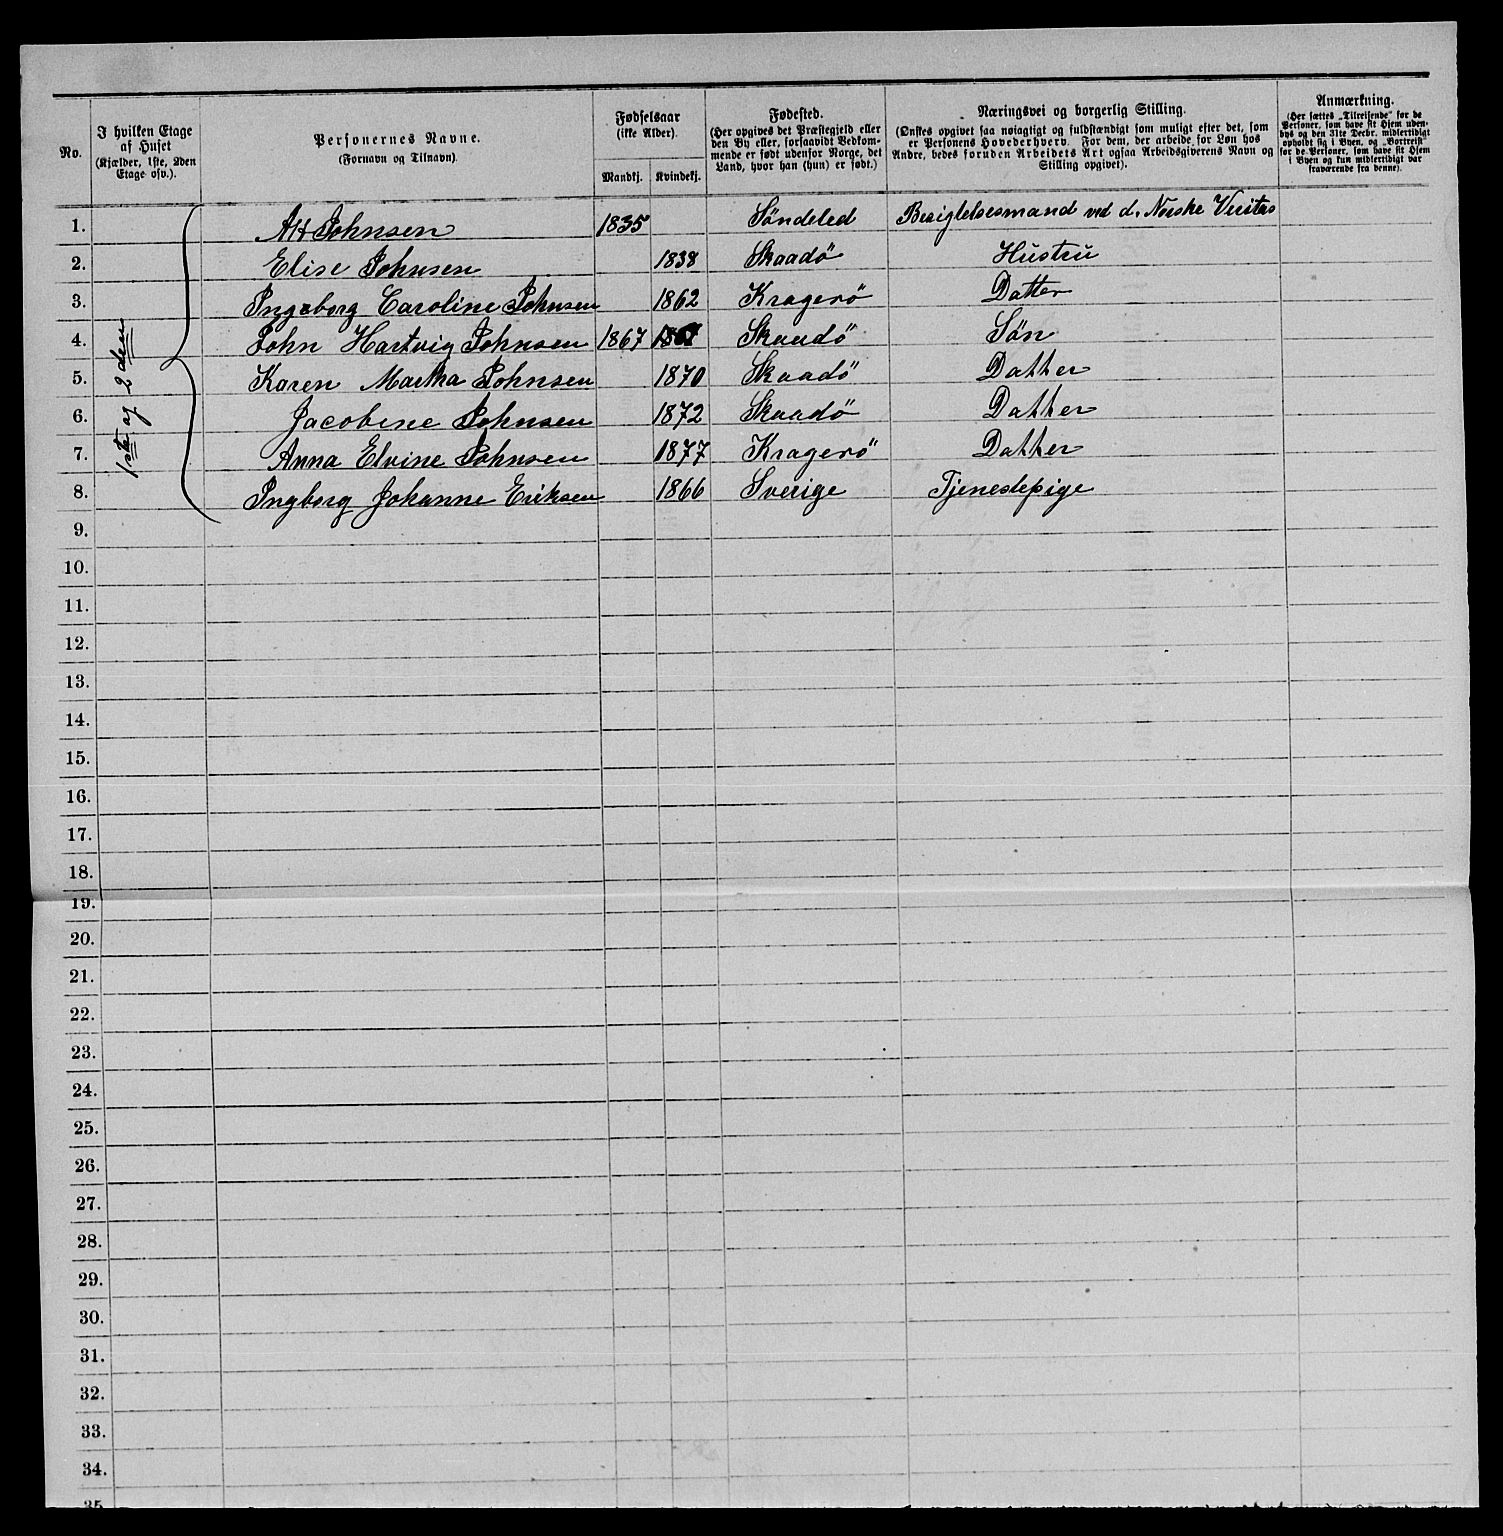 No.
I hvilken Etage
af Huset
(Kjælder, 1ste, 2den
Etage osv.).
Personernes Navne.
(Fornavn og Tilnavn).
Fødselsaar
(ikke Alder).
Mandkj.
Kvindekj.
Fødested.
(Her opgives det Præstegjeld eller
den By eller, forsaavidt Bedkom-
mende er født udenfor Norge, det
Land, hvor han (hun) er født.)
Næringsvei og borgerlig Stilling.
(Ønskes opgivet saa nøiagtigt og fuldstændigt som muligt efter det, som
er Personens Hovederhverv. For dem, der arbeide for Løn hos
Andre, bedes foruden Arbeidets Art ogsaa Arbeidsgiverens Navn og
Stilling opgivet).
Anmærkning.
(Her sættes „Tilreisende“ for de
Personer, som have sit Hjem uden-
bys og den 31te Decbr. midlertidigt
opholdt sig i Byen, og „Bortreist“
for de Personer, som have sit Hjem
i Byen og kun midlertidigt var
fraværende fra denne).
1ste og 2den
1. Johnsen 1835 Söndeled Besigtelsesmand ved d. Norske Veritas
2. Elise Johnsen 1838 Skaadö Hustru
3. Ingeborg Caroline Johnsen 1862 Kragerö Datter
4. John Hartvig Johnsen 1867 1867 Skaadö Sön
5. Karen Martha Johnsen 1870 Skaadö Datter
6. Jacobine Johnsen 1872 Skaadö Datter
7. Anna Elvine Johnsen 1877 Kragerö Datter
8. Ingborg Johanne Eriksen 1866 Sverige Tjenestepige
9.
10.
11.
12.
13.
14.
15.
16.
17.
18.
19.
20.
21.
22.
23.
24.
25.
26.
27.
28.
29.
30.
31.
32.
33.
34.
35